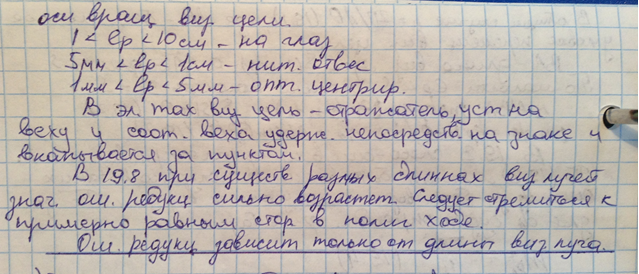 оси вращ. виз. цели.
1 < lр < 10см – на глаз
5мм < lр < 1см – нит. отвес
1мм < lр < 5мм – опт. центрир.
В эл. тах виз цель – отражатель, уст на
веху и соот. веха удерж. непосредств. на знаке и
за пунктом.
В 19.8 при существ. разных длинах виз лучей
знач. ош. редукц сильно возрастет. Следует стремиться к
примерно равным стор в полиг ходе.
Ош. редукц зависит только от длины виз луча.